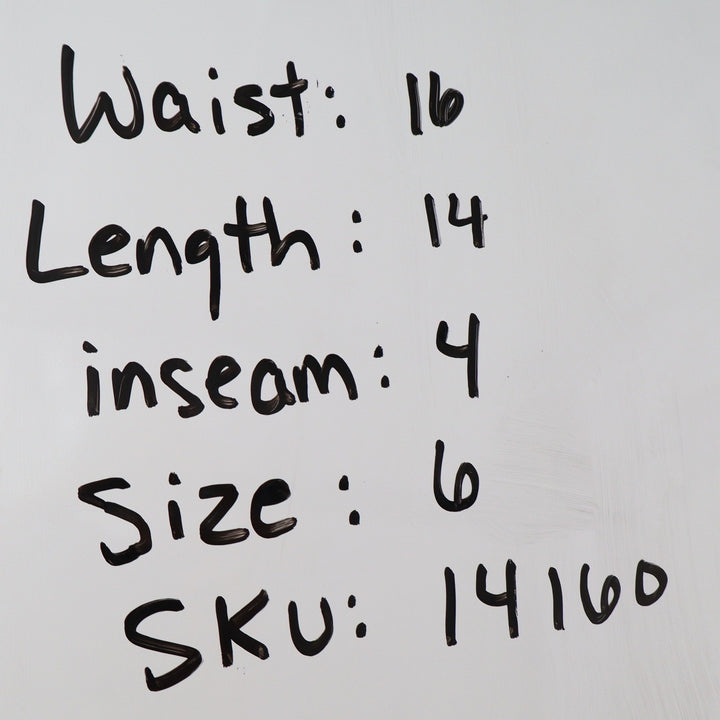 Waist: 16
Length: 14
inseam: 4
Size: 6
SKU: 14160